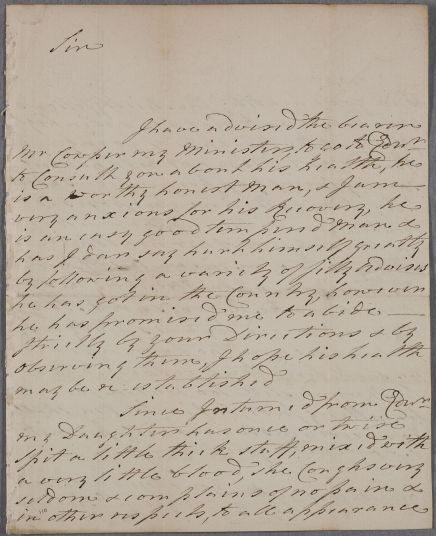 Sir
I have advised the bearer
Mr Cowper my Minister, to go to Town
to Consult you about his health, he
is a worthy honest Man, & I am
very anxious for his Recovery, he
is an easy good temperd Man &
has I dare say hurt himself greatly
by following a variety of silly Advices
he has got in the Country, however
he has promised me to abide
strictly by your Directions & by
Observing them, I hope his health
may be re-established
Since I returned from Town
my Daughter has once or twise
spit a little thick stuff, mixed with
a very little blood, she Coughs very
seldom & complains of no pain &
in other respects, to all appearance